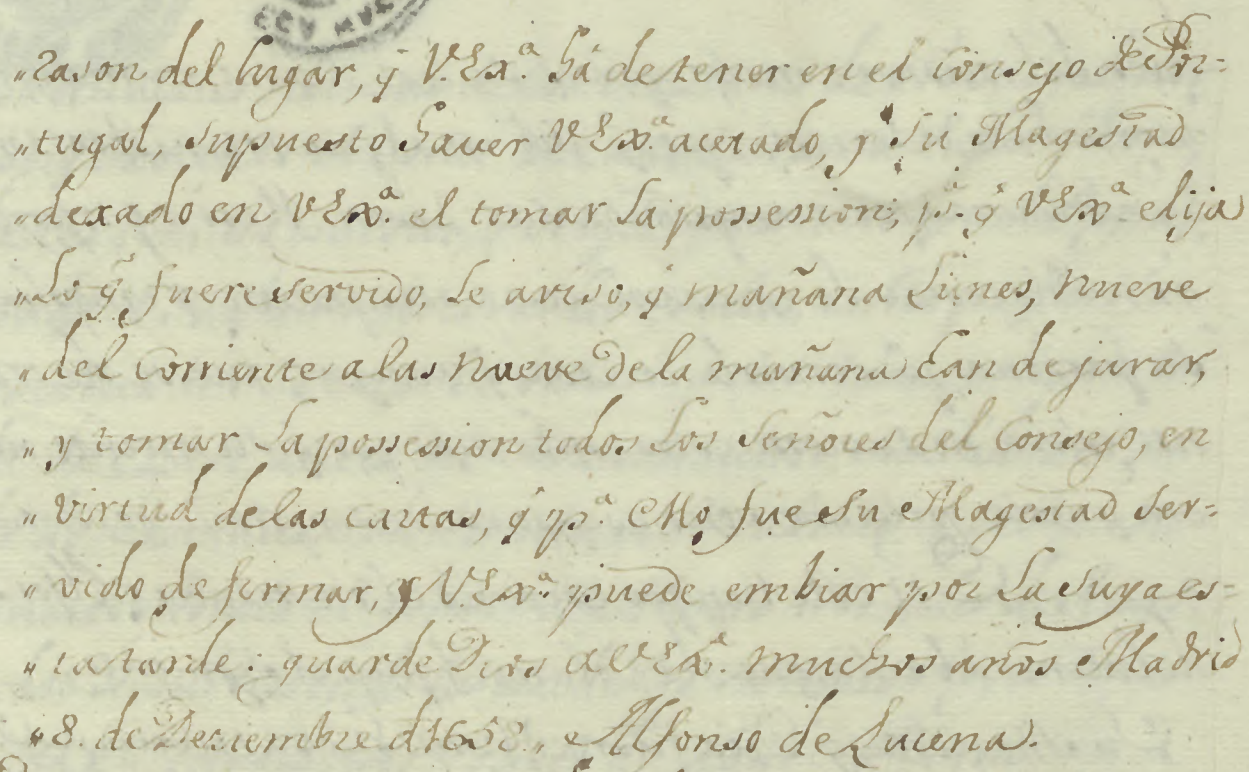 „rason del lugar, q̃ V.Exª. há detener en el consejo de Por=
„tugal, supuesto haver VExª. acetado, y su Magestad
„dexado en VExª. el tomar la possession; pª. q̃ VExª elija
„Lo q̃ fuere servido, le aviso, q̃ mañana Lunes, nueve
„del Corriente alas nueve dela mañana han de jurar,
„y tomar la possession todos los señores del Consejo, en
„virtud delas cartas, q̃ pª. ello fue su Magestad ser=
„vido de firmar, y V.Exª. puede embiar por la suya es=
„ta tarde: guarde Dios a VExª. muchos años Madrid
„8. de Deziembre d 1658„ Alfonso de Lucena.